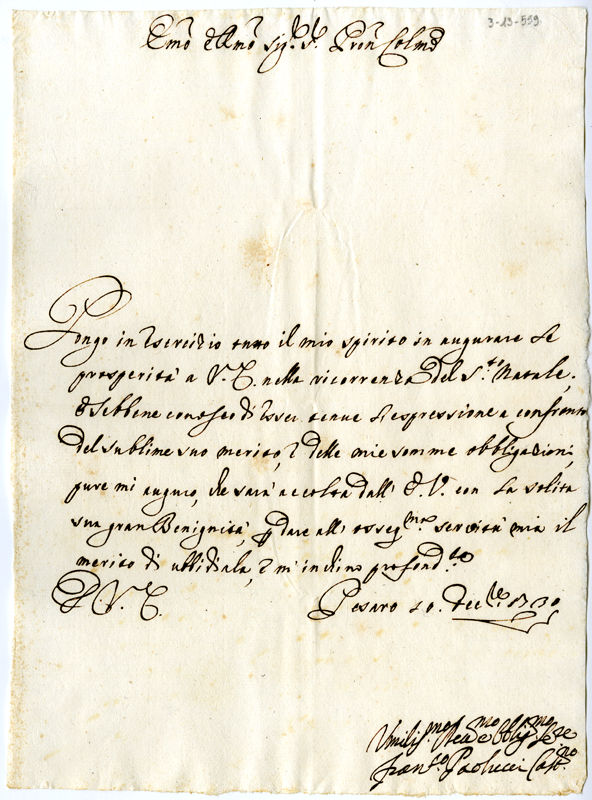 3-13-559
Em̃o e Rm̃o Sig.r Sig.r Pron Colmo
Pongo in Esercizio tutto il mio spirito in augurare le
prosperità a V. E. nella ricorrenza del S.to Natale,
e sebbene conosco di esser tenue l'espressione a confronto
del sublime suo merito, e delle mie somme obbligazioni,
pure mi auguro, che sarà accolta dall' E. V. con la solita
sua gran Benignità, p dare all' osseq.ma servitù mia il
merito di ubbidirla, e m' inchino profond.te
D. V. E.
Pesaro 20. Dec.le 1730
Umiliss.mo Dev.mo e Obblig.mo Se.re
Fran.co Paolucci